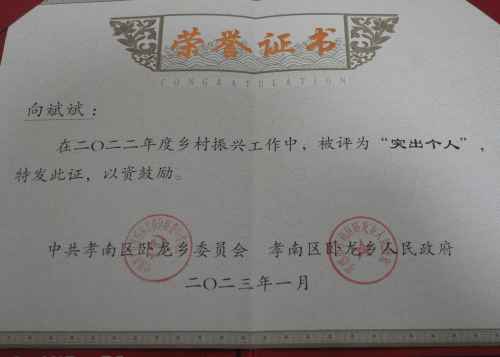 荣誉证书
CONGRATULATION
向斌斌：
在二〇二二年度乡村振兴工作中，被评为“突出个人”，
特发此证，以资鼓励。
中共孝南区卧龙乡委员会 孝南区卧龙乡人民政府
二〇二三年一月